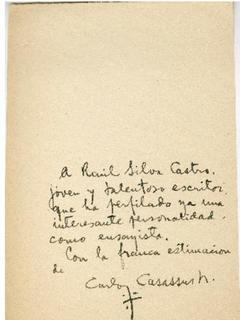 A Raúl Silva Castro.
joven y talentoso escritor,
que ha perfilado ya una
interesante personalidad
como ensayista.
Con la franca estimación
de
Carlos Casassus